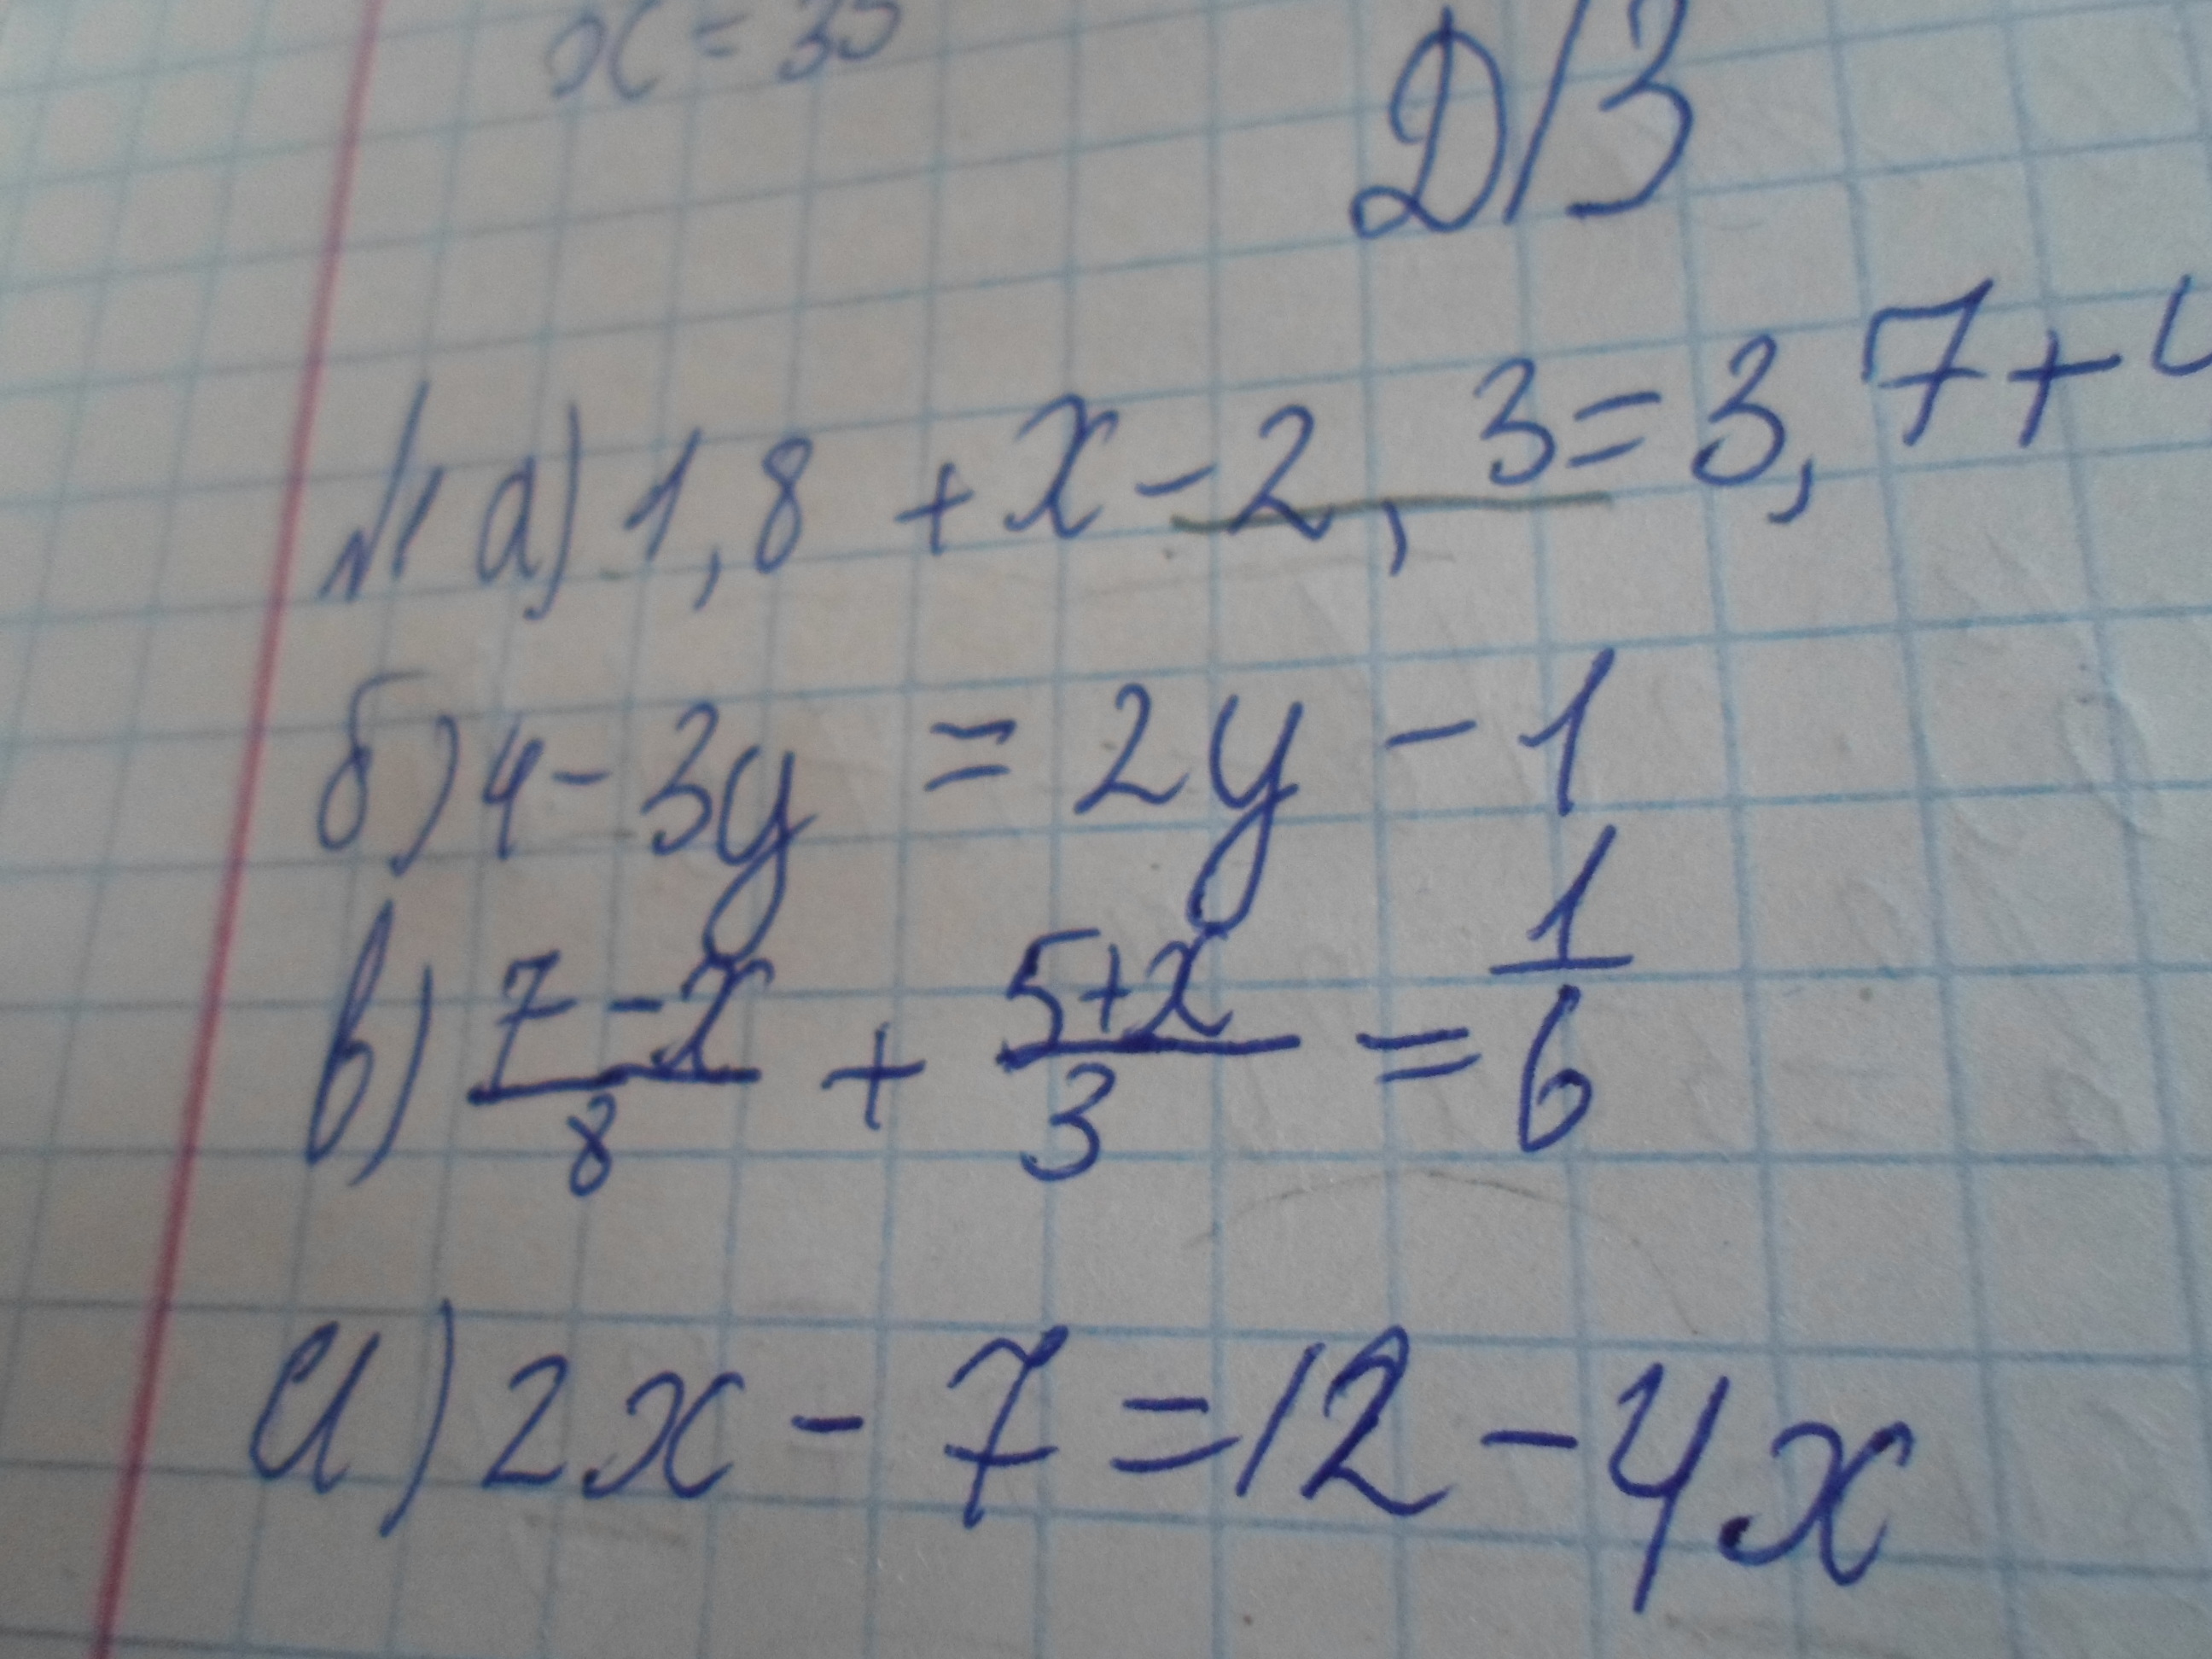 x = 35
Д/З
№1 а) 1,8 + x - 2,3 = 3,7 +
б) 4 - 3y = 2y - 1
в) \frac{7-x}{8} + \frac{5+x}{3} = \frac{1}{6}
а) 2x - 7 = 12 - 4x